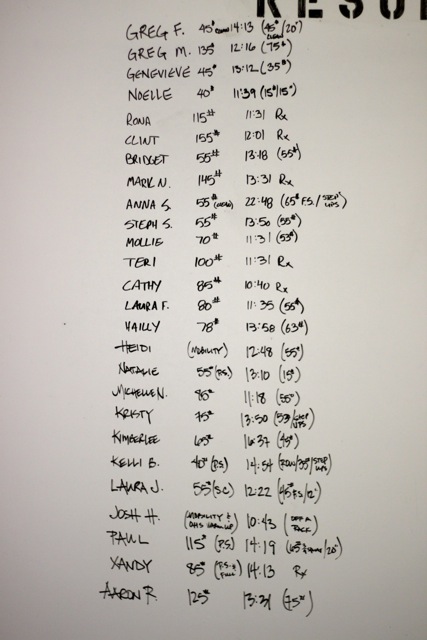 RESU
GREG F. 45# 14:13 (45#/20")
GREG M. 135# 12:16 (75#)
GENEVIEVE 45# 13:12 (35#)
NOELLE 40# 11:39 (15#/15")
RONA 115# 11:31 Rx
CLINT 155# 12:01 Rx
BRIDGET 55# 13:18 (55#)
MARK N. 145# 13:31 Rx
ANNA S. 55# 22:48 (65# F.S./STEP UPS)
STEPH S. 55# 13:50 (55#)
MOLLIE 70# 11:31 (53#)
TERI 100# 11:31 Rx
CATHY 85# 10:40 Rx
LAURA F. 80# 11:35 (55#)
HAILLY 78# 13:58 (63#)
HEIDI (MOBILITY) 12:48 (55#)
NATALIE 55# (P.S.) 13:10 (15#)
MICHELLE N. 85# 11:18 (55#)
KRISTY 75# 13:50 (53#/STEP UPS)
KIMBERLEE 65# 16:37 (45#)
KELLI B. 40# (P.S) 14:54 (ROW/35#/STEP UPS)
LAURA J. 55# (S.C) 12:22 (45# F.S/12")
JOSH H. (MOBILITY & OHS WARM UP) 10:43 (OFF A RACK)
PAUL 115# (P.S.) 14:19 (65# /20")
XANDY 85# (P.S. & FULL) 14:13 Rx
AARON R. 125# 13:31 (75#)